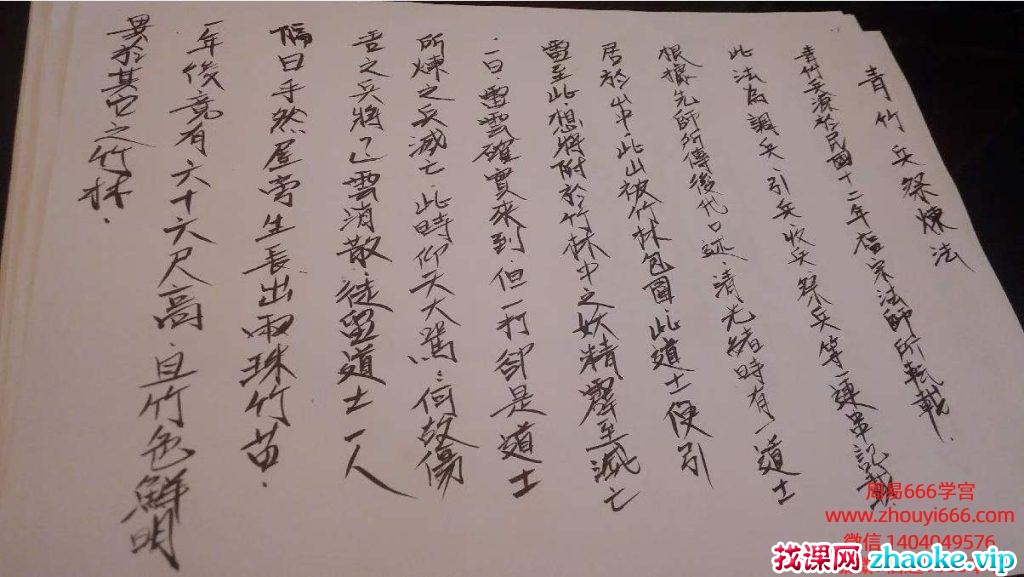 青竹兵祭煉法
青竹兵源於民國十二年 宗法師所転載.
此法為調兵、引兵收兵祭兵等一連串記載
根據先師所傳後代口述 清光緒時有一道士
居於山中此山被竹林包圍、此道士便引
雷至此、想將附於竹林中之妖精擊至滅亡
一日、雷雲確實來到但一打卻是道士
所煉之兵滅亡、此時仰天大罵：何故傷
吾之兵將、已雲消散、徒留道士一人
隔日手然屋旁生長出兩珠竹苗.
一年後竟有六十六尺高、且竹色鮮明
異於其它之竹林.
周易666学宫
www.zhouyi666.com
微信 1404049576
找课网 zhaoke.vip